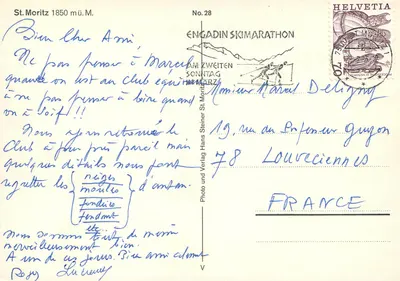 St. Moritz 1850 mü. M.
No. 28
Bien Cher Ami,
Ne pas penser à Marcel
quand on est au club équivaut
à ne pas penser à boire quand
on a soif!!
Nous avons retrouvé le
Club à peu près pareil mais
quelques détails nous font
regretter les
neiges
moulées
fondues
fondant
etc
d'antan.
Nous sommes tout de même
merveilleusement bien.
A un de ces jours. Bien amicalement
Roger
Photo und Verlag Hans Steiner St. Moritz
V
ENGADIN SKIMARATHON
AM ZWEITEN
SONNTAG
IM MÄRZ
HELVETIA
70
Monsieur Marcel
19, rue du
78 Louveciennes
FRANCE